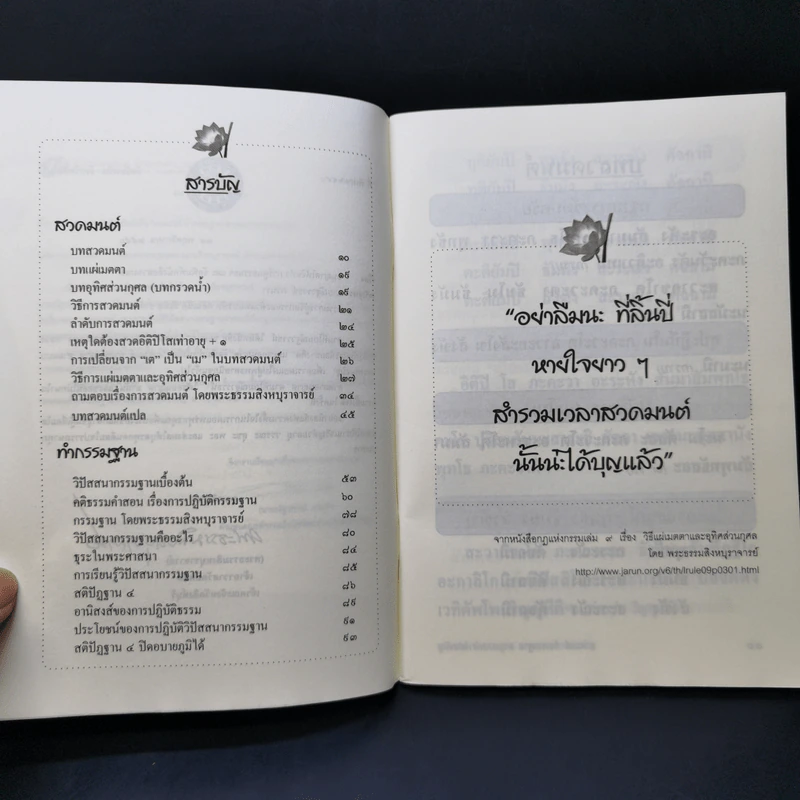 สารบัญ
สวดมนต์
บทสวดมนต์ ๑๐
บทแผ่เมตตา ๑๙
บทอุทิศส่วนกุศล (บทกรวดน้ำ) ๑๙
วิธีการสวดมนต์ ๒๑
ลำดับการสวดมนต์ ๒๔
เหตุใดต้องสวดอิติปิโสเท่าอายุ + ๑ ๒๕
การเปลี่ยนจาก “เต” เป็น “เม” ในบทสวดมนต์ ๒๖
วิธีการแผ่เมตตาและอุทิศส่วนกุศล ๒๗
ถามตอบเรื่องการสวดมนต์ โดยพระธรรมสิงหบุราจารย์ ๓๔
บทสวดมนต์แปล ๔๕
ทำกรรมฐาน
วิปัสสนากรรมฐานเบื้องต้น ๕๓
คติธรรมคำสอน เรื่องการปฏิบัติกรรมฐาน ๖๐
กรรมฐาน โดยพระธรรมสิงหบุราจารย์ ๗๘
วิปัสสนากรรมฐานคืออะไร ๘๐
ธุระในพระศาสนา ๘๔
การเรียนรู้วิปัสสนากรรมฐาน ๘๕
สติปัฏฐาน ๔ ๘๖
อานิสงส์ของการปฏิบัติธรรม ๘๙
ประโยชน์ของการปฏิบัติวิปัสสนากรรมฐาน ๙๑
สติปัฏฐาน ๔ ปิดอบายภูมิได้ ๙๓
“อย่าลืมนะ ที่ลิ้นปี่
หายใจยาว ๆ
สำรวมเวลาสวดมนต์
นั้นน่ะได้บุญแล้ว”
จากหนังสือกฎแห่งกรรมเล่ม ๙ เรื่อง วิธีแผ่เมตตาและอุทิศส่วนกุศล
โดย พระธรรมสิงหบุราจารย์
http://www.jarun.org/v6/th/lrule09p0301.html